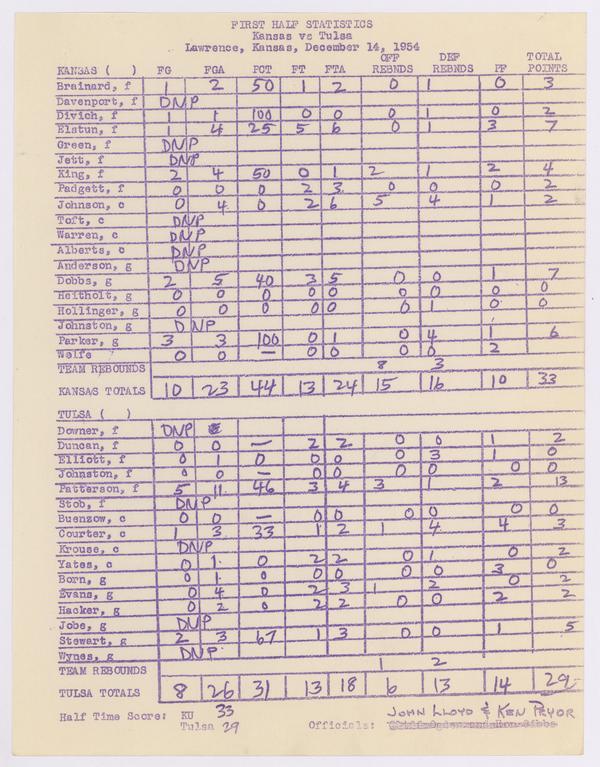 FIRST HALF STATISTICS
Kansas vs Tulsa
Lawrence, Kansas, December 14, 1954
KANSAS ( ) FG FGA PCT FT FTA OFF REBNDS DEF REBNDS PF TOTAL POINTS
Brainard, f 1 2 50 1 2 0 1 0 3
Davenport, f DNP
Divich, f 1 1 100 0 0 0 1 0 2
Elstun, f 1 4 25 5 6 0 1 3 7
Green, f DNP
Jett, f DNP
King, f 2 4 50 0 1 2 1 2 4
Padgett, f 0 0 0 2 3 0 0 0 2
Johnson, c 0 4 0 2 6 5 4 1 2
Toft, c DNP
Warren, c DNP
Alberts, c DNP
Anderson, g DNP
Dobbs, g 2 5 40 3 5 0 0 1 7
Heitholt, g 0 0 0 0 0 0 0 0 0
Hollinger, g 0 0 0 0 0 0 1 0 0
Johnston, g DNP
Parker, g 3 3 100 0 1 0 4 1 6
Wolfe 0 0 — 0 0 0 0 2
TEAM REBOUNDS 8 3
KANSAS TOTALS 10 23 44 13 24 15 16 10 33
TULSA ( )
Downer, f DNP
Duncan, f 0 0 — 2 2 0 0 1 2
Elliott, f 0 1 0 0 0 0 3 1 0
Johnston, f 0 0 — 0 0 0 0 0 0
Patterson, f 5 11 46 3 4 3 1 2 13
Stob, f DNP
Buenzow, c 0 0 — 0 0 0 0 0 0
Courter, c 1 3 33 1 2 1 4 4 3
Krouse, c DNP
Yates, c 0 1 0 2 2 0 1 0 2
Born, g 0 1 0 0 0 0 0 3 0
Evans, g 0 4 0 2 3 1 2 0 2
Hacker, g 0 2 0 2 2 0 0 2 2
Jobe, g DNP
Stewart, g 2 3 67 1 3 0 0 1 5
Wynes, g DNP
TEAM REBOUNDS 1 2
TULSA TOTALS 8 26 31 13 18 6 13 14 29
Half Time Score: KU 33
Tulsa 29
Officials: JOHN LLOYD & KEN PRYOR